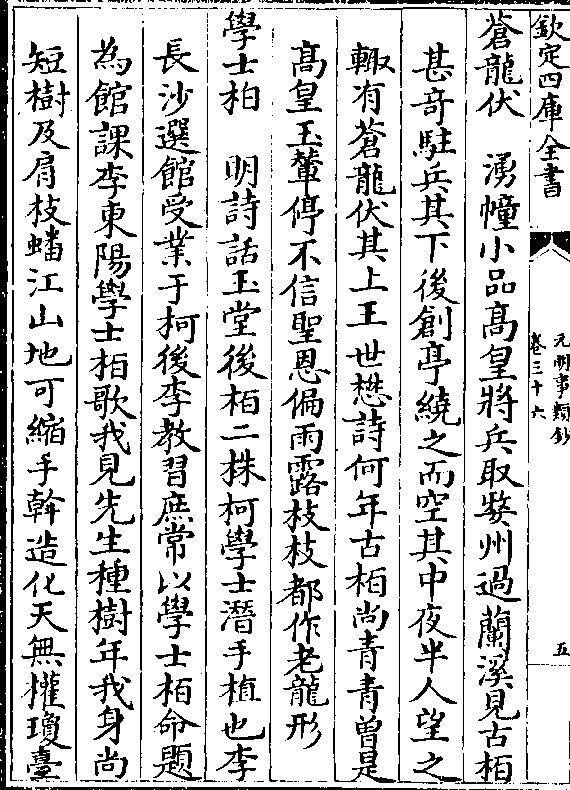 欽定四庫全書
元明事類鈔
卷三十六
五
蒼龍伏　湧幢小品高皇將兵取婺州過蘭溪見古柏
甚奇駐兵其下後創亭繞之而空其中夜半人望之
輙有蒼龍伏其上王世懋詩何年古柏尚青青曽是
髙皇玉輦停不信聖恩偏雨露枝枝都作老龍形
學士柏　明詩話玉堂後栢二株柯學士潛手植也李
長沙選館受業于柯後李教習庶常以學士栢命題
為館課李東陽學士栢歌我見先生種樹年我身尚
短樹及肩枝蟠江山地可縮手斡造化天無權瓊臺